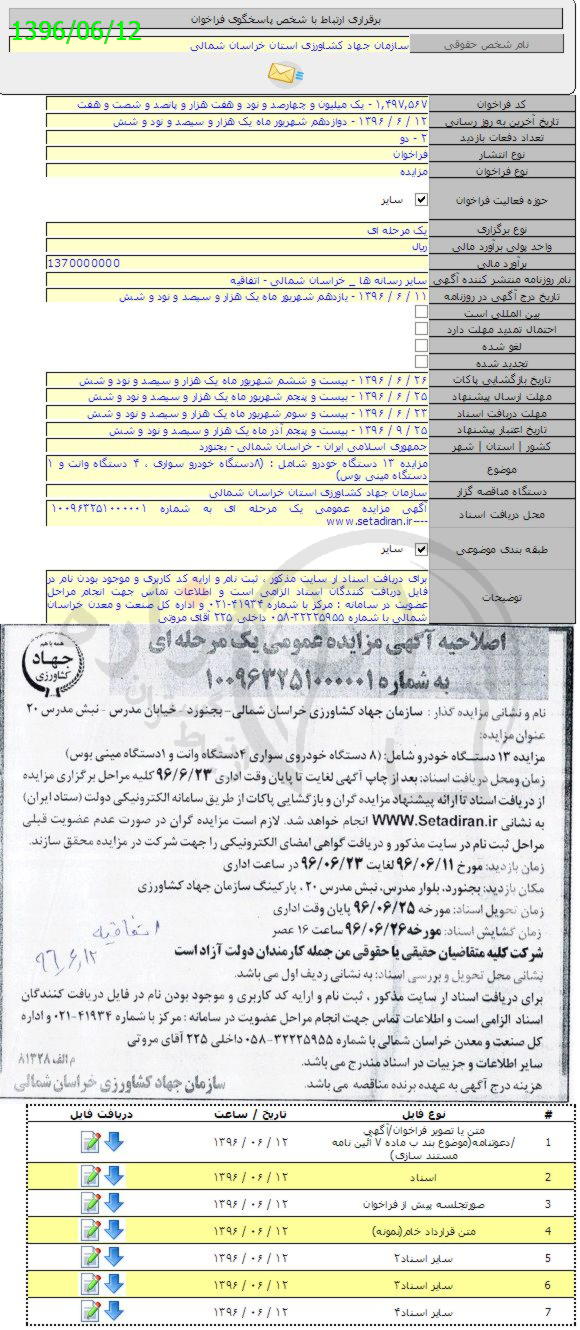 برقراری ارتباط با شخص پاسخگوی فراخوان
1396/06/12
نام شخص حقوقی سازمان جهاد کشاورزی استان خراسان شمالی
کد فراخوان ۱,۴۹۷,۵۶۷ - یک میلیون و چهارصد و نود و هفت هزار و پانصد و شصت و هفت
تاریخ آخرین به روز رسانی ۱۲ / ۶ / ۱۳۹۶ - دوازدهم شهریور ماه یک هزار و سیصد و نود و شش
تعداد دفعات بازدید ۲ - دو
نوع انتشار فراخوان
نوع فراخوان مزایده
حوزه فعالیت فراخوان سایر
نوع برگزاری یک مرحله ای
واحد پولی برآورد مالی ریال
برآورد مالی 1370000000
نام روزنامه منتشر کننده آگهی سایر رسانه ها _ خراسان شمالی - اتفاقیه
تاریخ درج آگهی در روزنامه ۱۱ / ۶ / ۱۳۹۶ - یازدهم شهریور ماه یک هزار و سیصد و نود و شش
بین المللی است
احتمال تمدید مهلت دارد
لغو شده
تجدید شده
تاریخ بازگشایی پاکات ۲۶ / ۶ / ۱۳۹۶ - بیست و ششم شهریور ماه یک هزار و سیصد و نود و شش
مهلت ارسال پیشنهاد ۲۵ / ۶ / ۱۳۹۶ - بیست و پنجم شهریور ماه یک هزار و سیصد و نود و شش
مهلت دریافت اسناد ۲۳ / ۶ / ۱۳۹۶ - بیست و سوم شهریور ماه یک هزار و سیصد و نود و شش
تاریخ اعتبار پیشنهاد ۲۵ / ۹ / ۱۳۹۶ - بیست و پنجم آذر ماه یک هزار و سیصد و نود و شش
کشور | استان | شهر جمهوری اسلامی ایران - خراسان شمالی - بجنورد
موضوع مزایده ۱۳ دستگاه خودرو شامل : (۸دستگاه خودرو سواری ، ۴ دستگاه وانت و ۱
دستگاه مینی بوس)
دستگاه مناقصه گزار سازمان جهاد کشاورزی استان خراسان شمالی
محل دریافت اسناد آگهی مزایده عمومی یک مرحله ای به شماره ۱۰۰۹۶۳۲۵۱۰۰۰۰۰۱
----www.setadiran.ir
طبقه بندی موضوعی سایر
توضیحات برای دریافت اسناد از سایت مذکور ، ثبت نام و ارایه کد کاربری و موجود بودن نام در
فایل دریافت کنندگان اسناد الزامی است و اطلاعات تماس جهت انجام مراحل
عضویت در سامانه : مرکز با شماره ۴۱۹۳۴-۰۲۱ و اداره کل صنعت و معدن خراسان
شمالی با شماره ۳۲۲۲۵۹۵۵-۰۵۸ داخلی ۲۲۵ آقای مروتی
همه با هم
جهاد
کشاورزی
اصلاحیه آگهی مزایده عمومی یک مرحله ای
به شماره ۱۰۰۹۶۳۲۵۱۰۰۰۰۰۱
نام و نشانی مزایده گذار : سازمان جهاد کشاورزی خراسان شمالی- بجنورد- خیابان مدرس - نبش مدرس ۲۰
عنوان مزایده:
مزایده ۱۳ دستگاه خودرو شامل: (۸ دستگاه خودروی سواری ۴دستگاه وانت و ۱دستگاه مینی بوس)
زمان ومحل دریافت اسناد: بعد از چاپ آگهی لغایت تا پایان وقت اداری ۹۶/۶/۲۳ کلیه مراحل برگزاری مزایده
از دریافت اسناد تا ارائه پیشنهاد مزایده گران و بازگشایی پاکات از طریق سامانه الکترونیکی دولت (ستاد ایران)
به نشانی WWW.Setadiran.ir انجام خواهد شد. لازم است مزایده گران در صورت عدم عضویت قبلی
مراحل ثبت نام در سایت مذکور و دریافت گواهی امضای الکترونیکی را جهت شرکت در مزایده محقق سازند.
زمان بازدید: مورخ ۹۶/۰۶/۱۱ لغایت ۹۶/۰۶/۲۳ در ساعت اداری
مکان بازدید: بجنورد، بلوار مدرس، نبش مدرس ۲۰ ، پارکینگ سازمان جهاد کشاورزی
زمان تحویل اسناد: مورخه ۹۶/۰۶/۲۵ پایان وقت اداری
زمان گشایش اسناد: مورخه۹۶/۰۶/۲۶ ساعت ۱۶ عصر
اتفاقیه
۹۶,۶,۱۲
شرکت کلیه متقاضیان حقیقی یا حقوقی من جمله کارمندان دولت آزاد است
نشانی محل تحویل و بررسی اسناد: به نشانی ردیف اول می باشد.
برای دریافت اسناد از سایت مذکور ، ثبت نام و ارایه کد کاربری و موجود بودن نام در فایل دریافت کنندگان
اسناد الزامی است و اطلاعات تماس جهت انجام مراحل عضویت در سامانه : مرکز با شماره ۴۱۹۳۴-۰۲۱ و اداره
کل صنعت و معدن خراسان شمالی با شماره ۳۲۲۲۵۹۵۵-۰۵۸ داخلی ۲۲۵ آقای مروتی
سایر اطلاعات و جزییات در اسناد مندرج می باشد.
م الف ۸۱۳۲۸
هزینه درج آگهی به عهده برنده مناقصه می باشد.
سازمان جهاد کشاورزی خراسان شمالی
# نوع فایل تاریخ / ساعت دریافت فایل
1 متن یا تصویر فراخوان/آگهی
/دعوتنامه(موضوع بند ب ماده ۷ آئین نامه
مستند سازی) ۱۳۹۶ / ۰۶ / ۱۲
2 اسناد ۱۳۹۶ / ۰۶ / ۱۲
3 صورتجلسه پیش از فراخوان ۱۳۹۶ / ۰۶ / ۱۲
4 متن قرارداد خام(نمونه) ۱۳۹۶ / ۰۶ / ۱۲
5 سایر اسناد۲ ۱۳۹۶ / ۰۶ / ۱۲
6 سایر اسناد۳ ۱۳۹۶ / ۰۶ / ۱۲
7 سایر اسناد۴ ۱۳۹۶ / ۰۶ / ۱۲